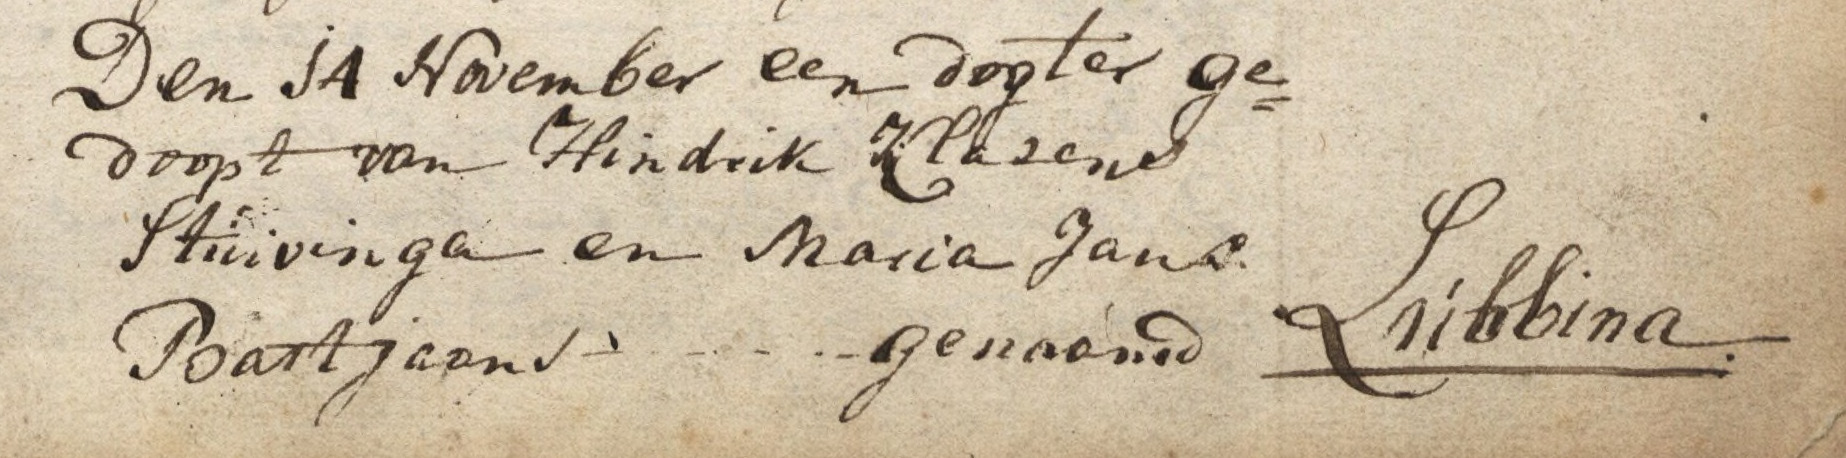 Den 14 November een dogter ge=
doopt van Hindrik Klasens
Stuivinga en Maria Jans
Bastjaans - - - - genaamd Lubbina.